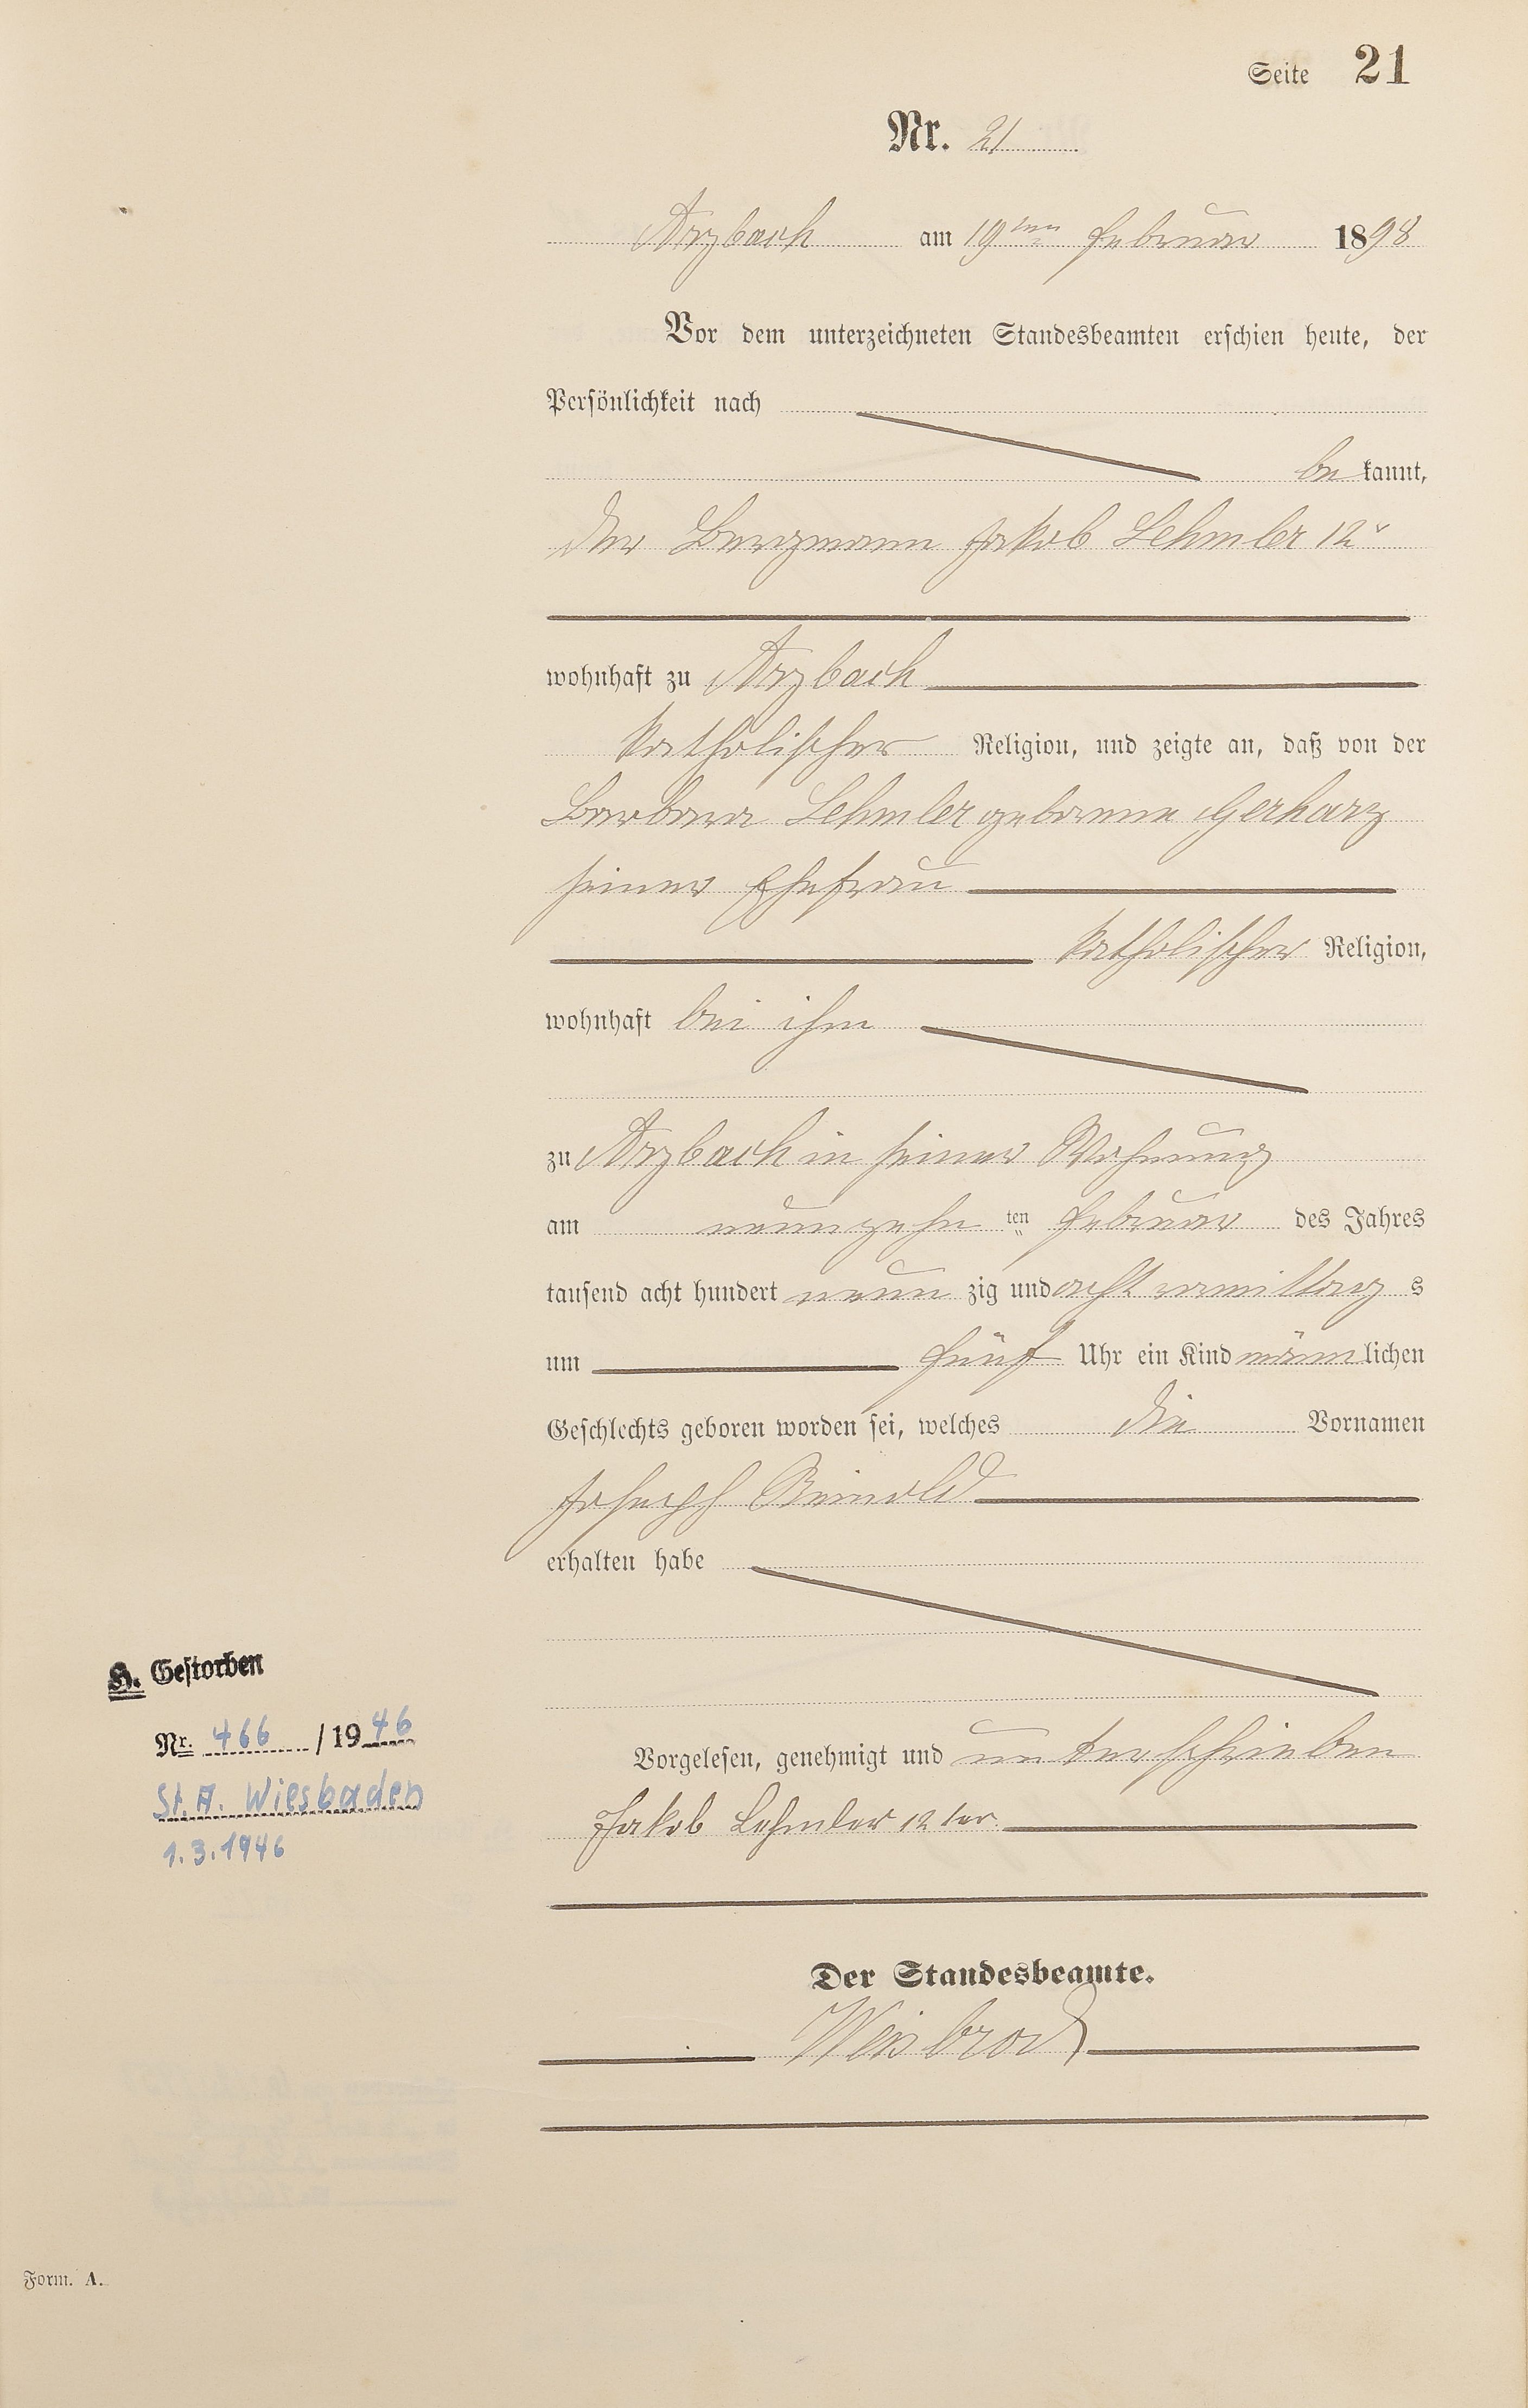 Seite 21
Nr. 21
Arzbach am 19ten Februar 1898
Vor dem unterzeichneten Standesbeamten erschien heute, der
Persönlichkeit nach
be kannt,
der Bergmann Jakob Lehmler 12r
wohnhaft zu Arzbach
katholischer Religion, und zeigte an, daß von der
Barbara Lehmler geborene Gerharz
seiner Ehefrau
katholischer Religion,
wohnhaft bei ihm
zu Arzbach in seiner Wohnung
am neunzehn ten Februar des Jahres
tausend acht hundert neun zig und acht vormittag s
um fünf Uhr ein Kind männ lichen
Geschlechts geboren worden sei, welches die Vornamen
Joseph Reinold
erhalten habe
Vorgelesen, genehmigt und unterschrieben
Jakob Lehmler 12ter.
Der Standesbeamte.
Weisbrod
H. Gestorben
Nr. 466 / 1946
St. A. Wiesbaden
1.3.1946
Form. A.